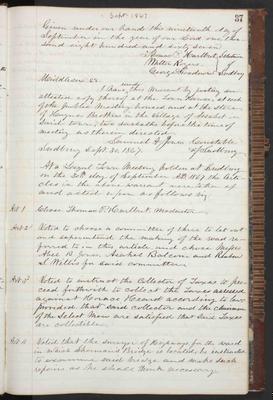 Sept. 1867
37
Given under our hands the nineteenth day of
September in the year of our Lord one thou
sand eight hundred and sixty seven
Thomas P. Hurlbut Selectmen
Walter Rogers of
George Goodnow Sudbury
Middlesex SS.
I have this warrant by posting an
attested copy thereof at the Town House, at each
of the public meeting houses and at the store
of Brothers in the village of Assabet in
said town, ten days before the time of
meeting as therein directed
Samuel H. Jones Constable
Sudbury Sept. 30. 1867. of Sudbury
At a Legal Town Meeting holden at Sudbury
on the 30th day of September AD 1867 the Arti-
cles in the above warrant were taken up
and acted upon as follows by
Art 1 Chose Thomas P. Hurlbut, Moderator
Art 2 Voted to choose a committee of three to let out
and superintend the of the road re-
ferred to in this article and chose Messrs
Abel B. Jones, Asahel Balcom and Reuben
N. Willis for said committee
Art 3 Voted to instruct the Collector of Taxes to pro
ceed forthwith to collect the Taxes assessed
against Horace Heard according to law
provided that said collector and the chairman
of the Select Men are satisfied that said Taxes
are collectible.
Art 4 Voted that the Surveyor of Highways for the ward
in which Sherman's Bridge is located, be instructed
to examine said bridge and make such
repairs as he shall think necessary